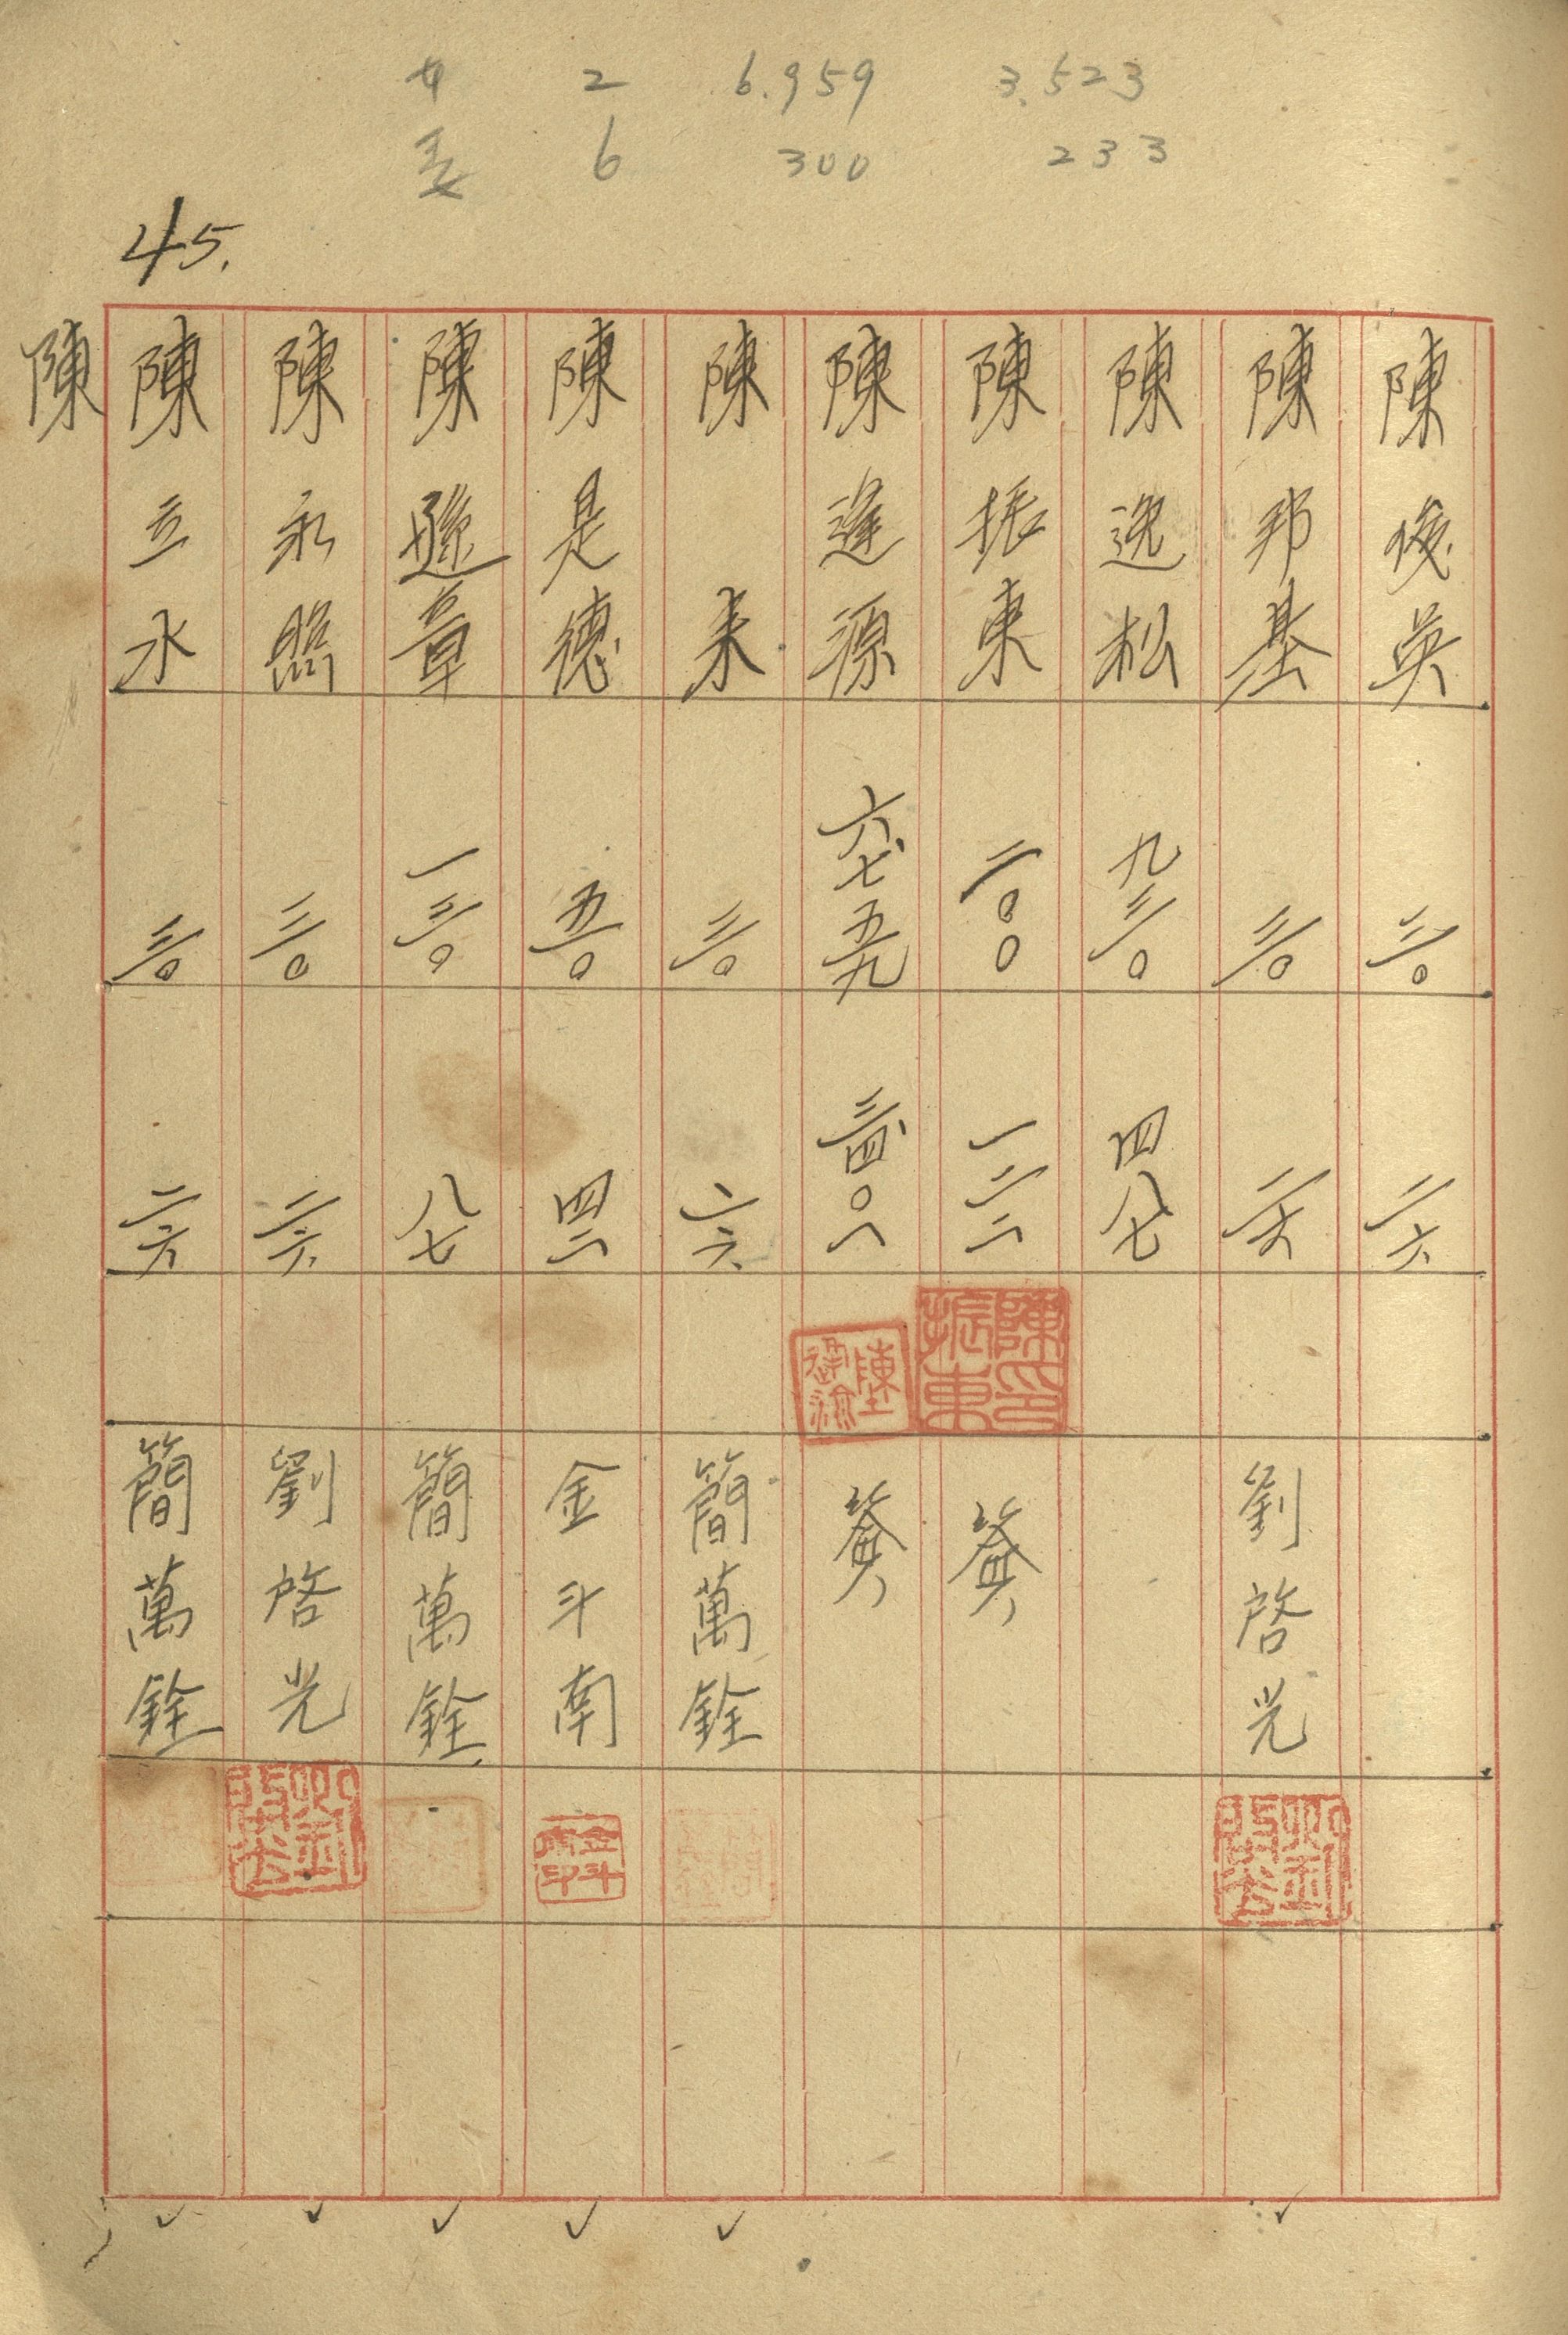 2 6.959 3.523
委 6 300 233
45.
陳 三〇 二六
陳邦基 三〇 二六 劉啓光
陳逸松 九三〇 四八七
陳振東 二〇〇 一二二 陳振東印
陳逢源 六、七五九 三、四〇一 陳逢源
陳 三〇 二六 簡萬銓
陳是德 五〇 四二 金斗南 金斗南印
陳遜章 一三〇 八七 簡萬銓
陳永照 三〇 二六 劉啓光
陳立水 三〇 二六 簡萬銓
陳